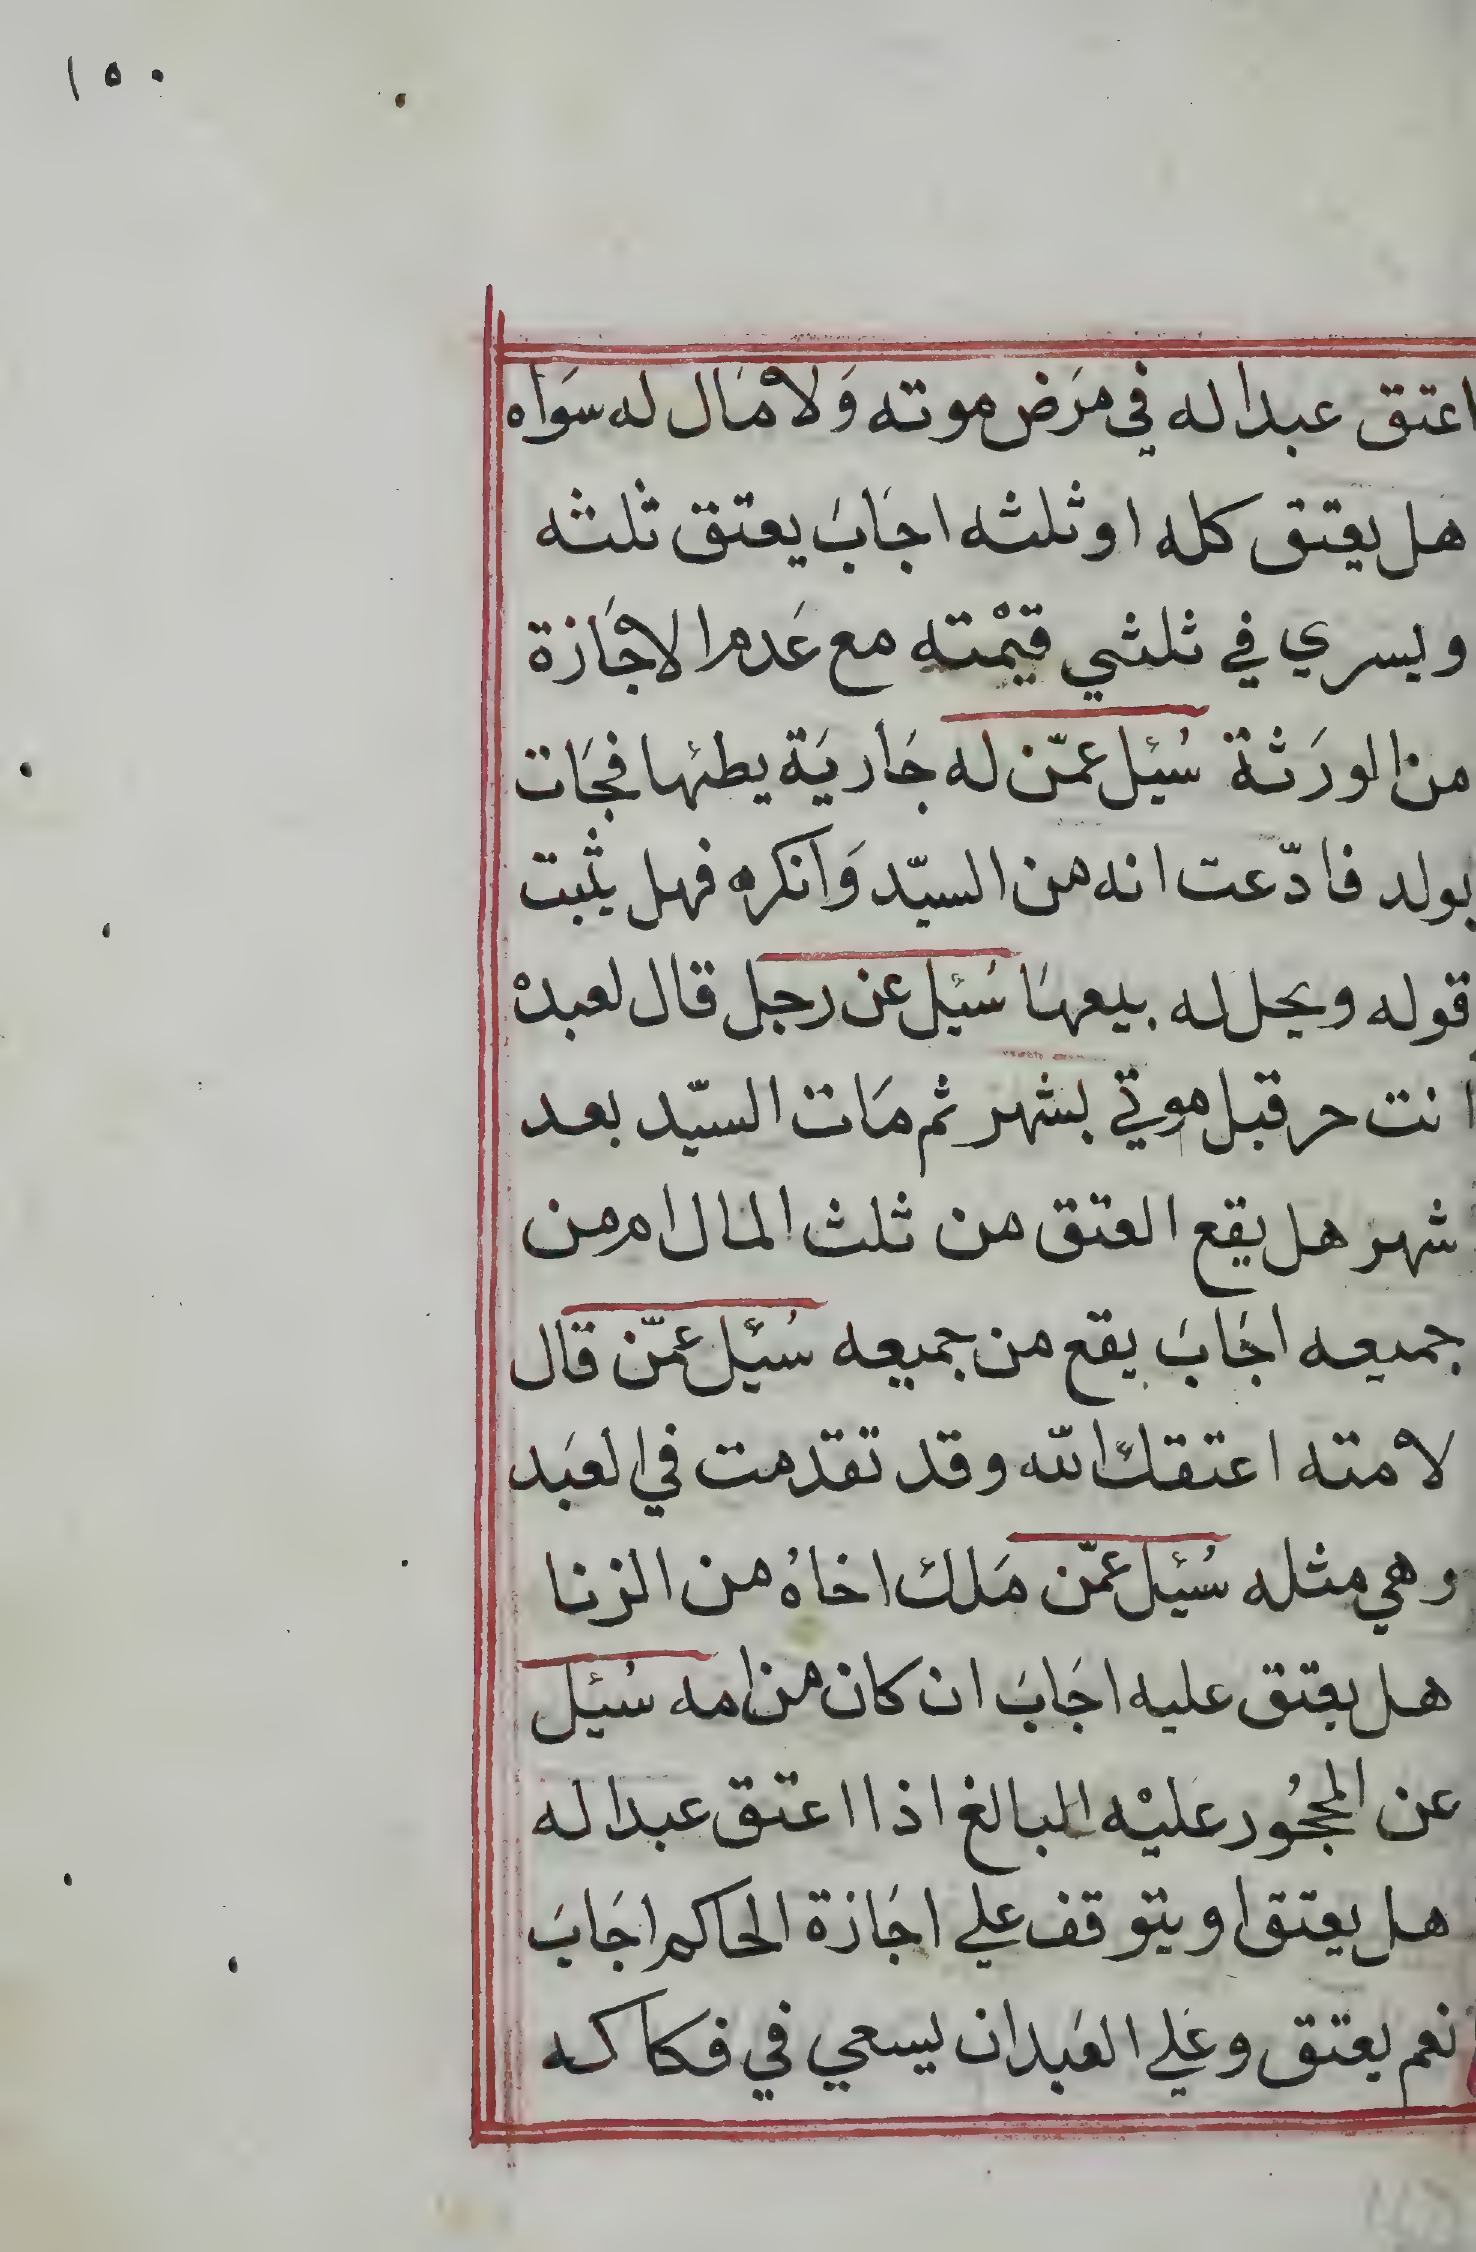 ١٥٠
اعتق عبدا له في مَرَض موته وَلا مَال له سوَاه
هَل يعتق كله او ثلثه اجَابَ يعتق ثلثه
ويسري في ثلثي قيْمته مع عَدم الاجَازة
من الورَثة سُئِل عمّن له جَاريَة يطئها فجَات
بولد فادّعت انه من السيّد وَانكره فهل يثبت
قوله ويحل له بيعهَا سُئِل عن رجل قال لعبدهْ
انت حر قبل موتي بشهر ثم مَات السيّد بعد
شهر هل يقع العتق من ثلث المال ام من
جميعه اجَابَ يقع من جميعه سُئِل عمّن قال
لامته اعتقك الله وقد تقدمت في العَبد
وهي مثله سُئِل عمّن مَلك اخاهُ من الزنا
هل يعتق عليه اجَابَ ان كان من امه سُئِل
عن المحجُور عليْه البالغ اذا اعتق عبدا له
هل يعتق او يتوقف علي اجَازة الحاكم اجَابَ
نعم يعتق وعَلي العَبد ان يسعي في فكاكه